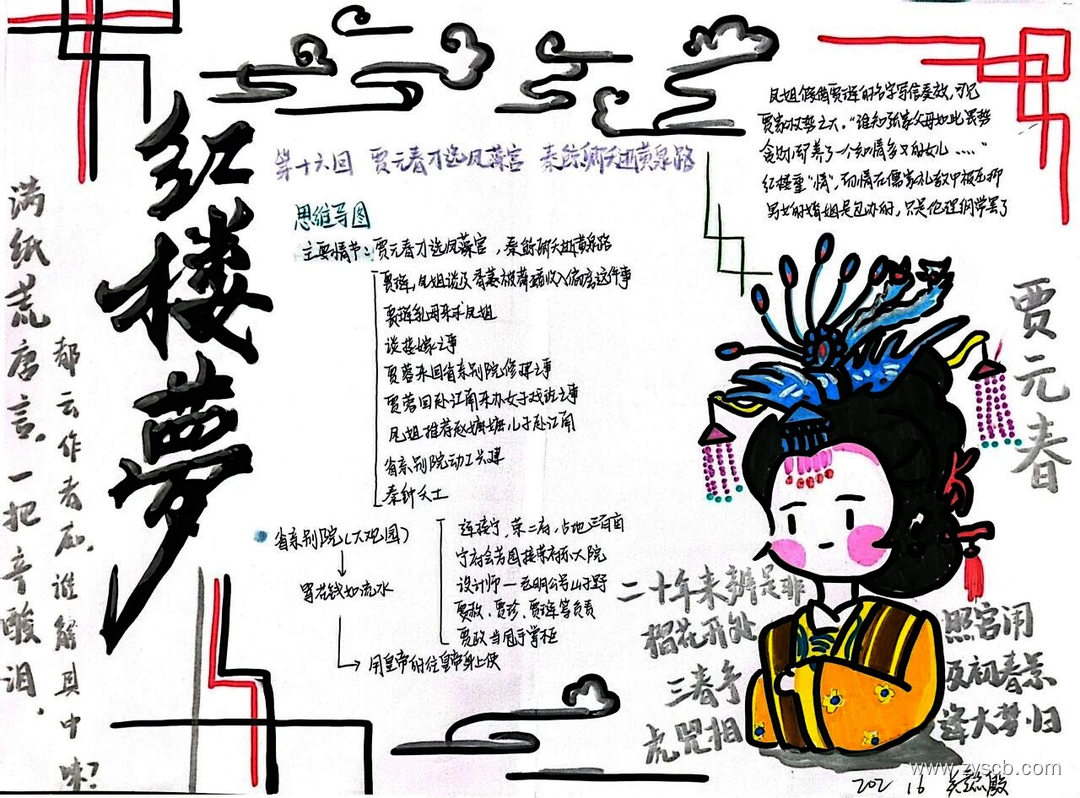 红楼夢
满纸荒唐言，一把辛酸泪，
都云作者痴，谁解其中味？
第十六回 贾元春才选凤藻宫 秦鲸卿夭逝黄泉路
思维导图
主要情节：贾元春才选凤藻宫，秦鲸卿夭逝黄泉路
贾琏，凤姐谈及香菱被薛蟠收入偏房这件事
贾琏乳母来求凤姐
谈接嫁之事
贾蓉来回省亲别院修理之事
贾蔷回赴江南采办女子戏班之事
凤姐推荐赵嬷嬷儿子赴江南
省亲别院动工兴建
秦钟夭亡
省亲别院（大观园）
连接宁，荣二府，占地三百亩
宁府会芳园接荣府东大院
设计师—老明公号山子野
贾赦，贾珍，贾琏等负责
贾政当甩手掌柜
冒花钱如流水
用皇帝的往皇帝身上使
凤姐假借贾琏的名字写信受贿，可见
贾家权势之大。"谁知张家父母如此畏势
贪财，却养了一个知情多义的女儿……"
红楼重"情"，而情在儒家礼教中被压抑
男女的婚姻是包办的，只是伦理纲常罢了
贾元春
二十年来辨是非
榴花开处照宫闱
三春争及初春景
虎兕相逢大梦归
www.zyscb.com